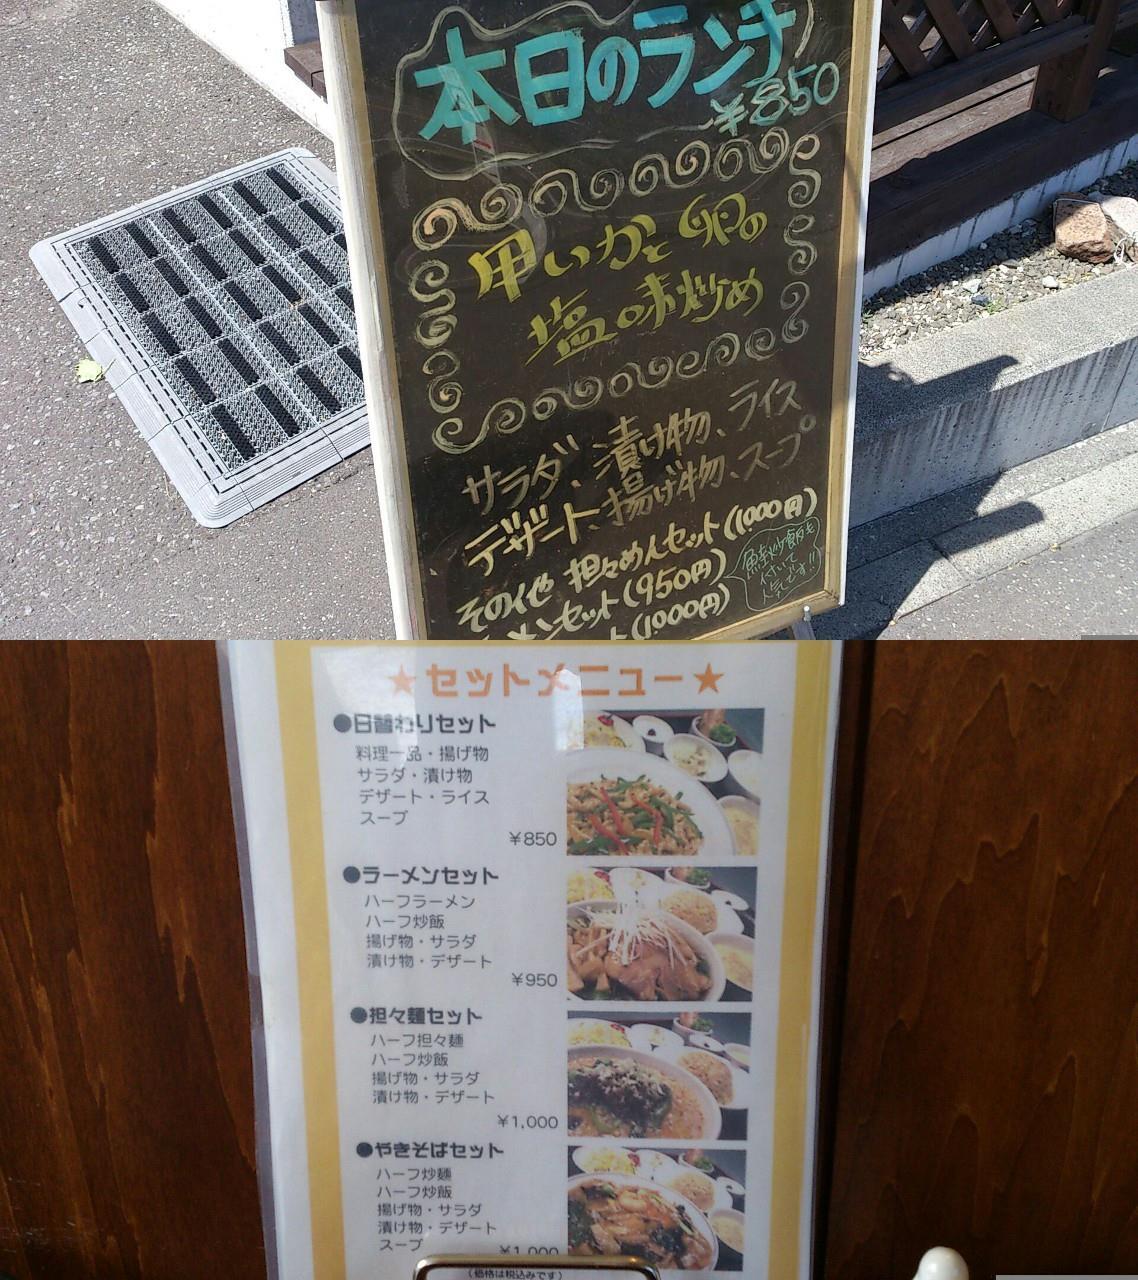 本日のランチ
¥850
甲いかと卵の
塩味炒め
サラダ、漬け物、ライス
デザート、揚げ物、スープ
その他 担々めんセット(1,000円)
メンセット(950円)
ト(1,000円)
鮭炒飯も
付いて
人気です!!
★セットメニュー★
●日替わりセット
料理一品・揚げ物
サラダ・漬け物
デザート・ライス
スープ
¥850
●ラーメンセット
ハーフラーメン
ハーフ炒飯
揚げ物・サラダ
漬け物・デザート
¥950
●担々麺セット
ハーフ担々麺
ハーフ炒飯
揚げ物・サラダ
漬け物・デザート
¥1,000
●やきそばセット
ハーフ炒麺
ハーフ炒飯
揚げ物・サラダ
漬け物・デザート
スープ
¥1,000
(価格は税込みです)